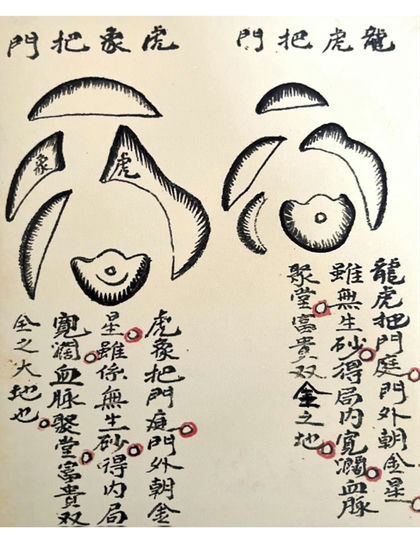 龍虎把門
龍虎把門庭門外朝金星
雖無生砂得局内寬濶血脉
聚堂富貴双全之地
虎象把門
象
虎
虎象把門庭門外朝金
星雖係無生砂得内局
寬濶血脉聚堂富貴双
全之大地也